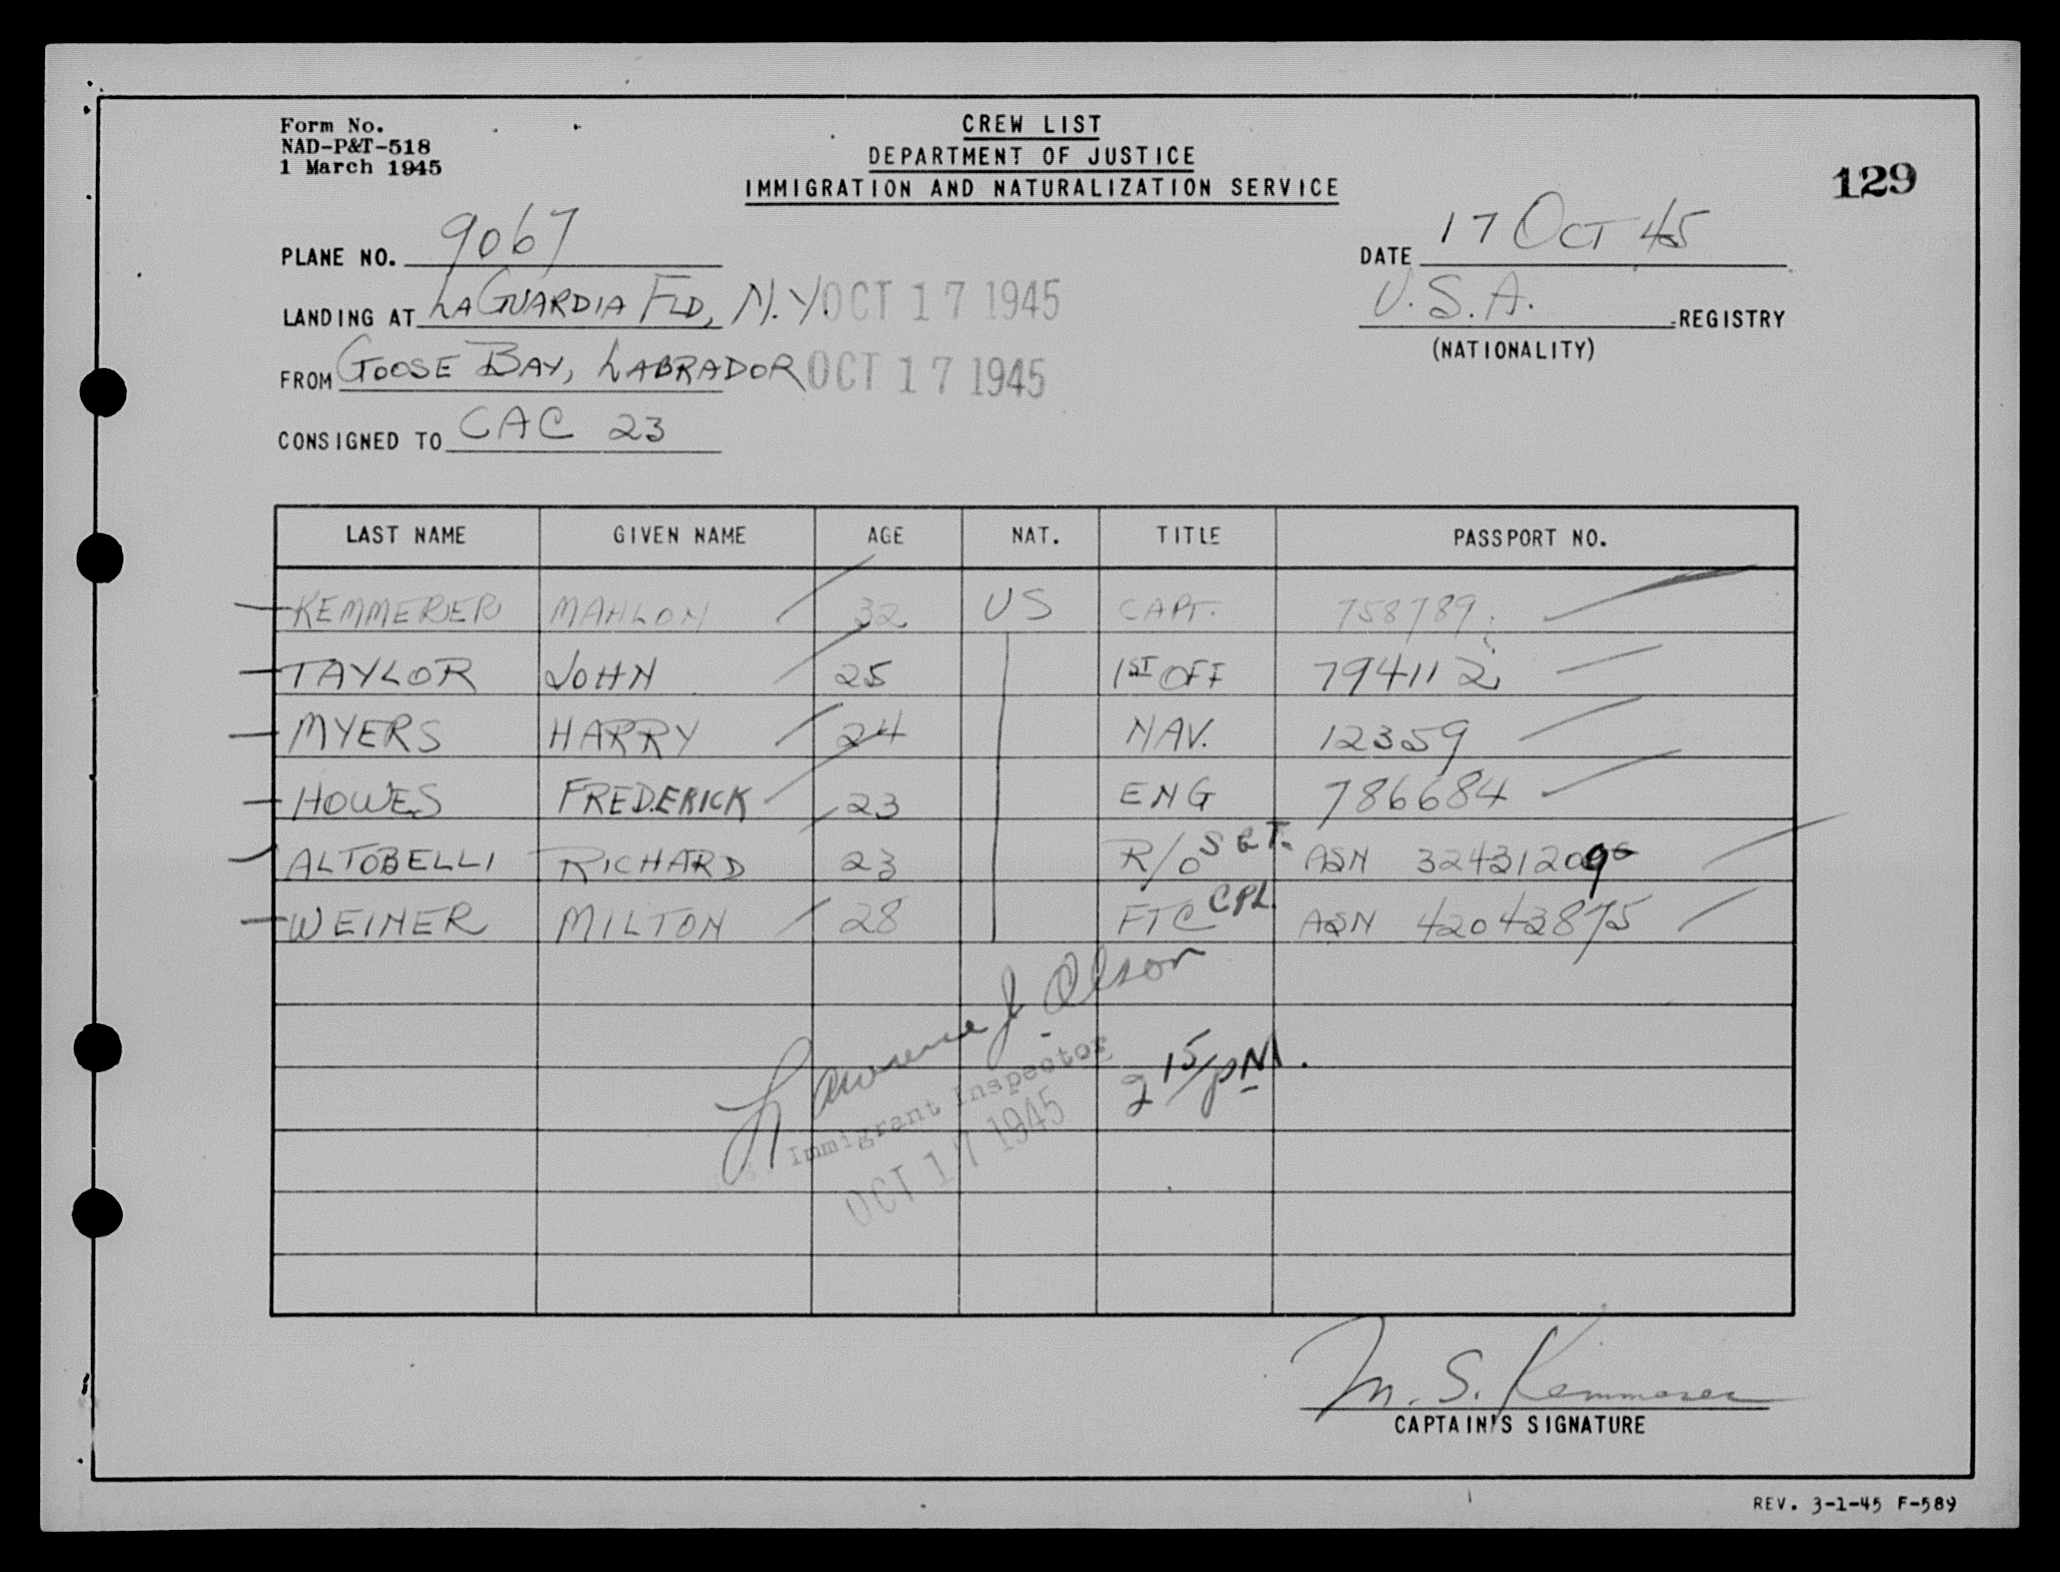 Form No.
NAD-P&T-518
1 March 1945
CREW LIST
DEPARTMENT OF JUSTICE
IMMIGRATION AND NATURALIZATION SERVICE
129
PLANE NO. 9067
DATE 17 OCT 45
LANDING AT LAGUARDIA FLD, N.Y. OCT 17 1945
U.S.A. REGISTRY
(NATIONALITY)
FROM GOOSE BAY, LABRADOR OCT 17 1945
CONSIGNED TO CAC 23
LAST NAME GIVEN NAME AGE NAT. TITLE PASSPORT NO.
KEMMERER MAHLON 32 US CAPT. 758789
TAYLOR JOHN 25 1ST OFF 794112
MYERS HARRY 24 NAV. 12359
HOWES FREDERICK 23 ENG 786684
ALTOBELLI RICHARD 23 R/O SGT. ASN
WEINER MILTON 28 FTC CPL ASN 42043875
Lawrence J. Olson
Immigrant Inspector
OCT 17 1945
2 15/PM.
M. S. Kemmerer
CAPTAIN'S SIGNATURE
REV. 3-1-45 F-589